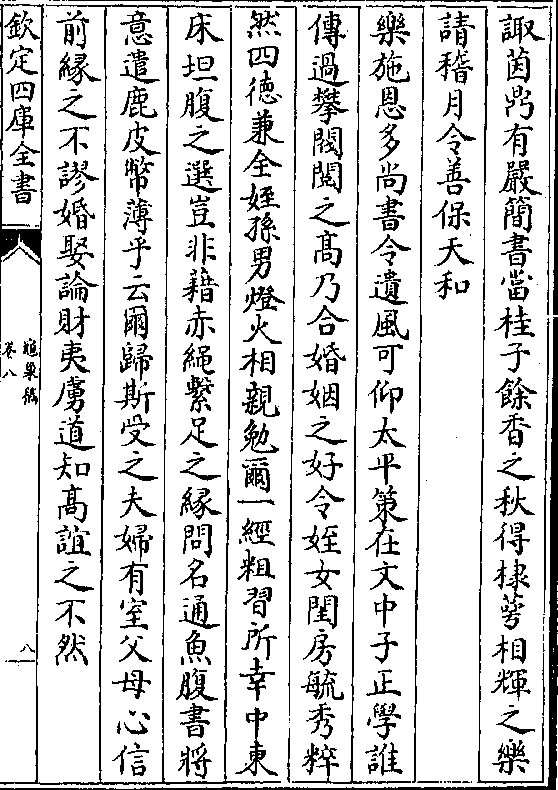 諏茵㒵有嚴簡書當桂子餘香之秋得棣萼相輝之樂
請稽月令善保天和
樂施恩多尚書令遺風可仰太平策在文中子正學誰
傳過攀閥閱之高乃合婚姻之好令姪女閨房毓秀粹
然四徳兼全姪孫男燈火相親勉爾一經粗習所幸中東
床坦腹之選豈非藉赤繩繫足之緣問名通魚腹書將
意遣鹿皮幣薄乎云爾歸斯受之夫婦有室父母心信
前縁之不謬婚娶論財夷虜道知髙誼之不然
欽定四庫全書
巢稿
卷八
八